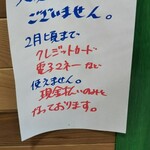 ございません。
2月頃まで
クレジットカード
電子マネーなど
使えません。
現金払いのみと
なっております。